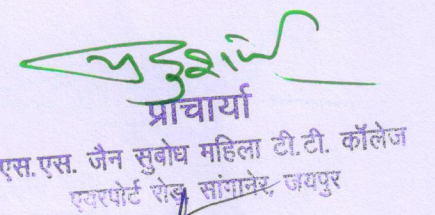 प्राचार्या
एस.एस. जैन सुबोध महिला टी.टी. कॉलेज
एयरपोर्ट रोड, सांगानेर, जयपुर